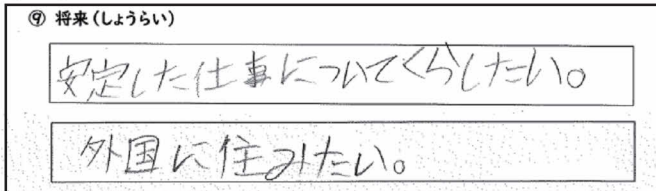 ⑨ 将来(しょうらい)
安定した仕事についてくらしたい。
外国に住みたい。